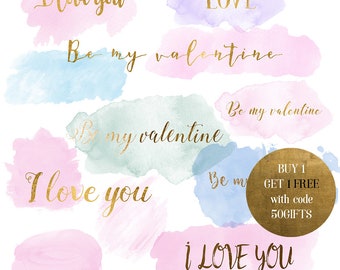 I love you
LOVE
Be my valentine
Be my valentine
Be my valentine
I love you
Be my
BUY 1
GET 1 FREE
with code
50GIFTS
i LOVE YOU